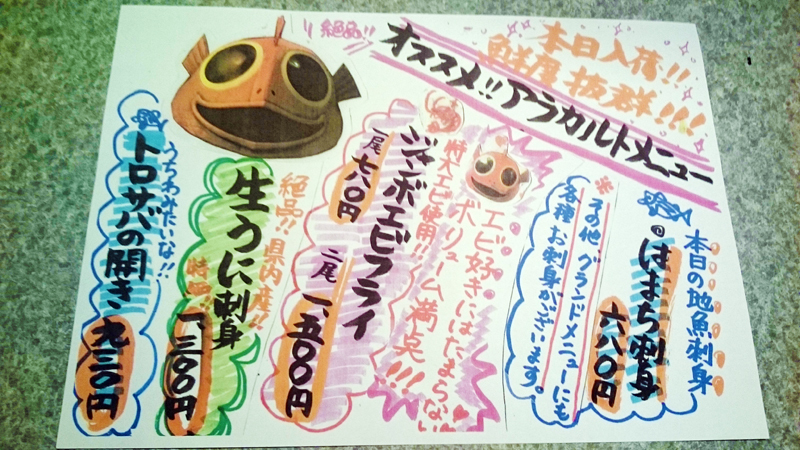 本日入荷!!
鮮度抜群!!!
絶品!!
オススメ!!アラカルトメニュー
本日の地魚刺身
はまち刺身
六八〇円
※その他 グランドメニューにも
各種 お刺身がございます。
エビ好きにはたまらない
ボリューム満点!!!
特大エビ使用!!
ジャンボエビフライ
一尾 七八〇円
二尾 一、五〇〇円
絶品!! 県内産!!
生うに刺身
時価
一、三〇〇円
うちわみたいな!!
トロサバの開き
九三〇円